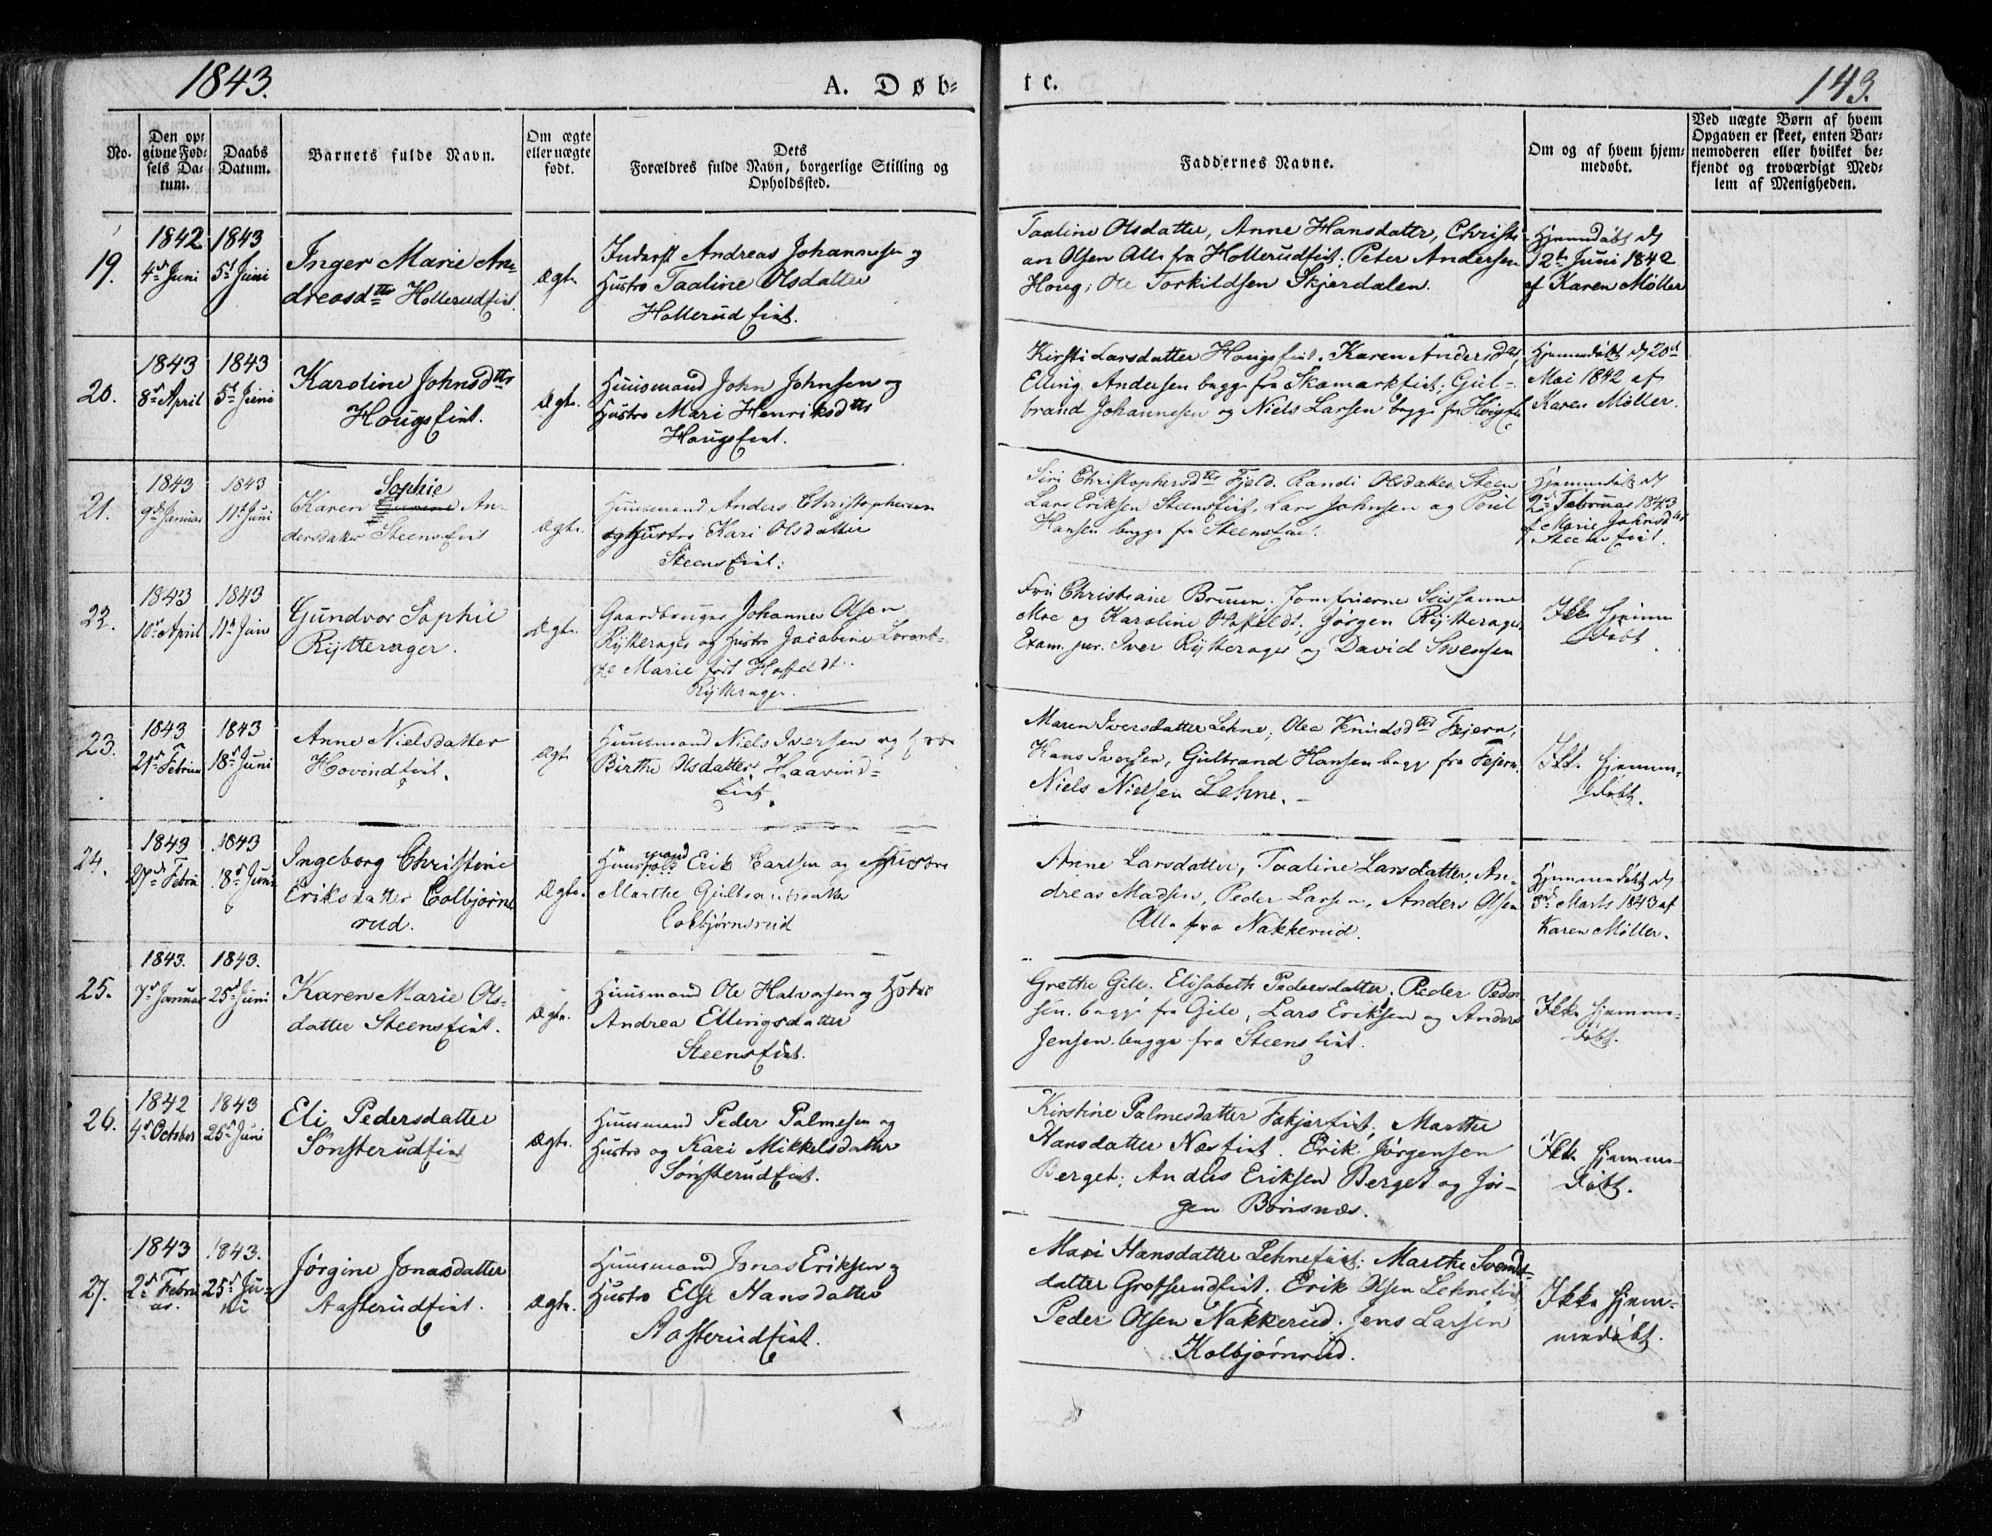 1843.
A. Døb-
te.
143.
No.
Den op-
givne Fød-
sels Da-
tum.
Daabs
Datum.
Barnets fulde Navn.
Om ægte
eller uægte
født.
Dets
Forældres fulde Navn, borgerlige Stilling og
Opholdssted.
Faddernes Navne.
Om og af hvem hjem-
medøbt.
Ved uægte Børn af hvem
Opgaven er skeet, enten Bar-
nemoderen eller hvilket be-
kjendt og troværdigt Med-
lem af Menigheden.
19.
1842
4de Juni
1843
5te Juni
Inger Marie An-
dreasdtr Hollerudeiet.
Ægte.
Inderst Andreas Johannesen og
Hustro Taaline Olsdatter
Hollerud Eiet.
Taaline Olsdatter, Anne Hansdatter, Christi-
an Olsen Alle fra Hollerudeiet. Peter Andersen
Houg, Ole Torkildsen Skjerdalen.
Hjemmdøbt d
12te Juni 1842
af Karen Møller
20.
1843
8de April
1843
5te Juni
Karoline Johnsdtr
Hougseiet.
Ægte.
Huusmand John Johnsen og
Hustro Mari Henriksdtr
Hougseiet.
Kirsti Larsdatter Hougseiet. Karen Andersdtr,
Elling Andersen begge fra Skamarkeiet. Gul-
brand Johannesen og Niels Larsen begge fra
Hjemmdøbt d 20de
Mai 1842 af
Karen Møller.
21.
1843
9de Januar
1843
11te Juni
Sophie
Karen An-
dersdatter Steenseiet
Ægte.
Huusmand Anders Christophersen
og Hustro Kari Olsdatter
Steenseiet.
Siri Christophersdtr Fjeld. Randi Olsdatter Steen
Lars Eriksen Steenseiet, Lars Johnsen og Poul
Hansen begge fra Steenseiet.
Hjemmdøbt d
2den Februar 1843
af Marie Johnsdtr
Steenseiet.
22.
1843
10de April
1843
11te Juni
Gundvor Sophie
Rytterager.
Ægte.
Gaardbruger Johannes Olsen
Rytterager og Hustro Jacobine Lorent-
ze Marie født Hoffeldt.
Rytterager.
Fru Christiane Bruun. Jomfruerne Susanne
Moe og Karoline Hoffeldt, Jørgen Rytterager
Exam. jur. Iver Rytterager og David Svensen
Ikke hjemme
døbt.
23.
1843
21de Februar
1843
18de Juni
Anne Nielsdatter
Hovindeiet.
Ægte
Huusmand Niels Iversen og
Birthe Olsdatter Haavind-
eiet.
Maren Iversdatter Lehne, Olea Knudsdtr Fejern,
Hans Iversen, Gulbrand Hansen begge fra Fejern.
Niels Nielsen Lehne.
Ikke hjemme-
døbt.
24.
1843
27de Febru
1843
18de Juni
Ingeborg Christine
Eriksdatter Colbjørns
rud.
Ægte.
mand
Huus Erik Carlsen og Hustro
Marthe Gulbrandsdatter
Colbjørnsrud
Anne Larsdatter, Taaline Larsdatter, An-
dreas Madsen, Peder Larsen, Anders Olsen
Alle fra Nakkerud.
Hjemmedøbt d
3de Marts 1843 af
Karen Møller.
25.
1843.
7de Januar
1843.
25de Juni
Karen Marie Ols-
datter Steenseiet.
Ægte.
Huusmand Ole Halvorsen og Hstro
Andrea Ellingsdatter
Steenseiet.
Grethe Gile. Elisabeth Pedersdatter. Peder Peder
sen. begge fra Gile, Lars Eriksen og Anders
Jensen. begge fra Steenseiet.
Ikke hjemme-
døbt.
26.
1842
4de October
1843
25de Juni
Eli Pedersdatter
Sønsterudeiet
Ægte.
Huusmand Peder Palmesen og
Hustro og Kari Mikkelsdatter
Sønsterudeiet.
Kirstine Palmesdatter , Marthe
Hansdatter Næseiet. Erik Jørgensen
Berget, Anders Eriksen Berget og Jør-
gen Børisnæs.
Ikke hjemme-
døbt.
27.
1843
2den Febru
ar.
1843.
25de Ju-
ni
Jørgine Jonasdatter
Aasterudeiet.
Ægte.
Huusmand Jonas Eriksen og
Hustro Else Hansdatter
Aasterudeiet.
Mari Hansdatter Lehneeiet. Marthe Svends-
datter Grøfserudeiet, Erik Olsen Lehneeiet
Peder Olsen Nakkerud. Jens Larsen
Kolbjørnrud.
Ikke hjem-
medøbt.